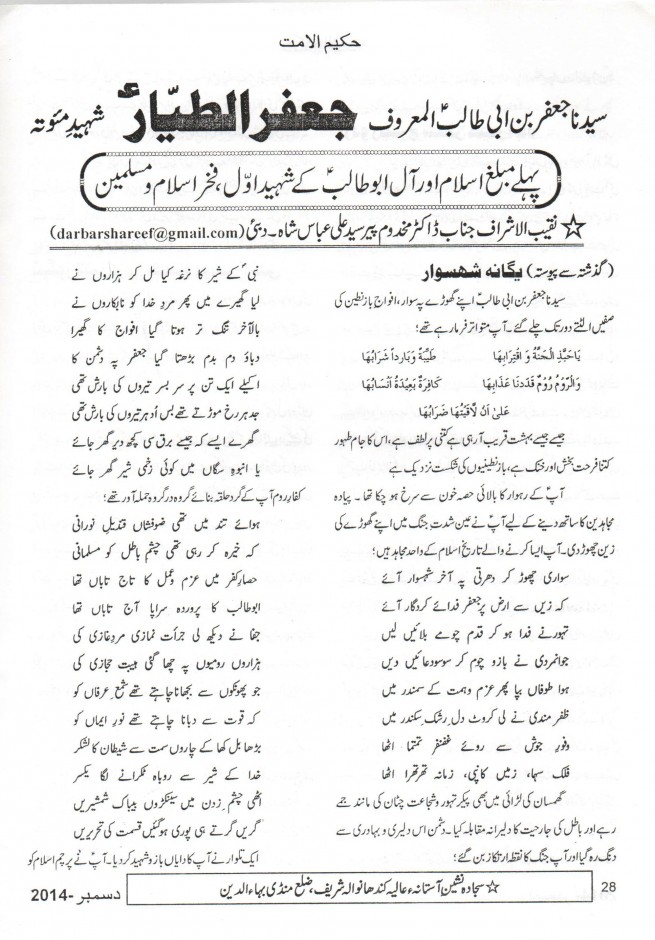 حکیم الامت
سیدنا جعفر بن ابی طالبؑ المعروف جعفر الطیّارؑ شہیدِ مئوتہ
پہلے مبلغ اسلام اور آلِ ابو طالبؑ کے شہیدِ اوّل، فخرِ اسلام و مسلمین
☆ نقیب الاشراف جناب ڈاکٹر مخدوم پیر سید علی عباس شاہ۔ دبئی (darbarshareef@gmail.com)
(گذشتہ سے پیوستہ) یگانہ شہسوار
سیدنا جعفر بن ابی طالبؑ اپنے گھوڑے پہ سوار، افواج بازنطین کی
صفیں الٹتے دور تک چلے گئے۔ آپ متواتر فرما رہے تھے؛
يَاحَبَّذَ الْجَنَّةُ وَ اقْتِرَابُهَا طَيِّبَةً وَبَارِداً شَرَابُهَا
وَالرُّوْمُ رُوْمٌ قَدْدَنَا عَذَابُهَا كَافِرَةٌ بَعِيْدَةٌ أَنْسَابُهَا
عَلیٰ اَنْ لَاقَيْتُهَا ضَرَابُهَا
جیسے جیسے بہشت قریب آ رہی ہے کتنی پر لطف ہے، اس کا جام طہور
کتنا فرحت بخش اور خنک ہے، بازنطینیوں کی شکست نزدیک ہے
آپؑ کے رہوار کا بالائی حصہ خون سے سرخ ہو چکا تھا۔ پیادہ
مجاہدین کا ساتھ دینے کے لیے آپ نے عین شدتِ جنگ میں اپنے گھوڑے کی
زین چھوڑ دی۔ آپ ایسا کرنے والے تاریخ اسلام کے واحد مجاہد ہیں؛
سواری چھوڑ کر دھرتی پہ آخر شہسوار آئے
کہ زیں سے ارض پر جعفر فدائے کردگار آئے
تہور نے فدا ہو کر قدم چومے بلائیں لیں
جوانمردی نے بازو چوم کر سو سو دعائیں دیں
ہوا طوفاں بپا پھر عزم و ہمت کے سمندر میں
ظفر مندی نے لی کروٹ دلِ رشکِ سکندر میں
وفورِ جوش سے روئے غضنفر تمتما اٹھا
فلک سہما، زمیں کانپی، زمانہ تھرتھرا اٹھا
گھمسان کی لڑائی میں بھی پیکرِ تہور و شجاعت چٹان کی مانند جمے
رہے اور باطل کی جارحیت کا دلیرانہ مقابلہ کیا۔ دشمن اس دلیری و بہادری سے
دنگ رہ گیا اور آپ جنگ کا نقطہ ارتکاز بن گئے؛
نبیؐ کے شیر کا نرغہ کیا مل کر ہزاروں نے
لیا گھیرے میں پھر مردِ خدا کو نابکاروں نے
بالآخر تنگ تر ہوتا گیا افواج کا گھیرا
دباؤ دم بدم بڑھتا گیا جعفر پہ دشمن کا
اکیلے ایک تن پر سر بسر تیروں کی بارش تھی
جدھر رخ موڑتے تھے بس اُدھر تیروں کی بارش تھی
گھرے ایسے کہ جیسے برق سی کچھ دیر گھر جائے
یا انبوہِ سگاں میں کوئی زخمی شیر گھر جائے
کفارِ روم آپ کے گرد حلقہ بنائے گروہ در گروہ حملہ آور تھے؛
ہوائے تند میں تھی ضوفشاں قندیل نورانی
کہ خیرہ کر رہی تھی چشمِ باطل کو مسلمانی
حصارِ کفر میں عزم و عمل کا تاج تاباں تھا
ابو طالب کا پروردہ سراپا آج تاباں تھا
جفا نے دیکھ لی جرأت نمازی مردِ غازی کی
ہزاروں رومیوں پہ چھا گئی ہیبت حجازی کی
جو پھونکوں سے بجھانا چاہتے تھے شمعِ عرفاں کو
کہ قوت سے دبانا چاہتے تھے نورِ ایماں کو
بڑھا بل کھا کے چاروں سمت سے شیطاں کا لشکر
خدا کے شیر سے روباہ ٹکرانے لگا یکسر
اٹھی چشم زدن میں سینکڑوں بیباک شمشیریں
گریں گرتے ہی پوری ہو گئیں قسمت کی تحریریں
ایک تلوار نے آپ کا دایاں بازو شہید کر دیا۔ آپؑ نے پرچمِ اسلام کو
28
☆ سجادہ نشین آستانہ ءعالیہ کندھانوالہ شریف، ضلع منڈی بہاءالدین
دسمبر -2014